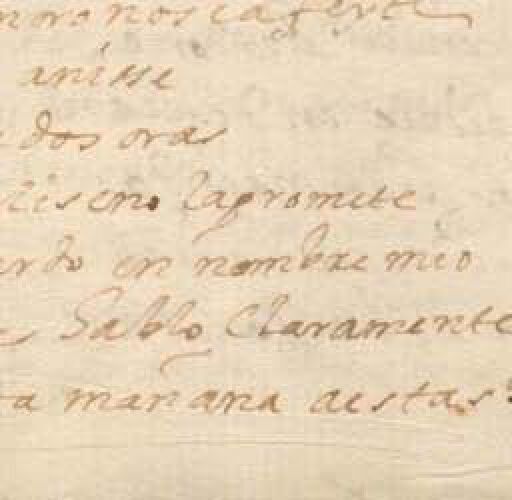 anisse
dos oras
liseno la promete
erdo en nombre mio
Hablo Claramente
ta mañana a estas